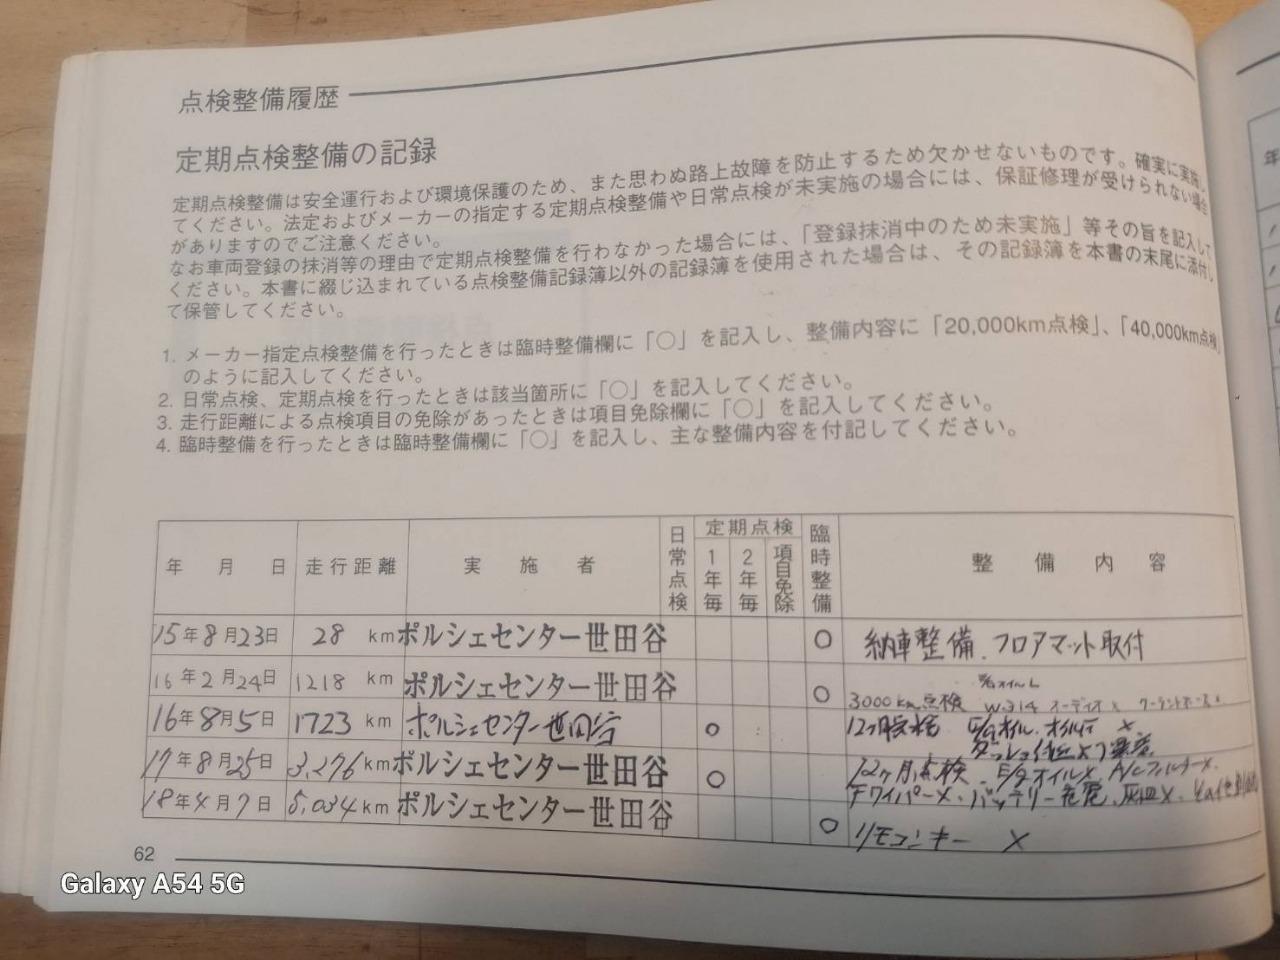 点検整備履歴
定期点検整備の記録
定期点検整備は安全運行および環境保護のため、また思わぬ路上故障を防止するため欠かせないものです。確実に実施し
てください。法定およびメーカーの指定する定期点検整備や日常点検が未実施の場合には、保証修理が受けられない場合
がありますのでご注意ください。
なお車両登録の抹消等の理由で定期点検整備を行わなかった場合には、「登録抹消中のため未実施」等その旨を記入して
ください。本書に綴じ込まれている点検整備記録簿以外の記録簿を使用された場合は、その記録簿を本書の末尾に添付し
て保管してください。
1. メーカー指定点検整備を行ったときは臨時整備欄に「○」を記入し、整備内容に「20,000km点検」、「40,000km点検」
のように記入してください。
2. 日常点検、定期点検を行ったときは該当箇所に「○」を記入してください。
3. 走行距離による点検項目の免除があったときは項目免除欄に「○」を記入してください。
4. 臨時整備を行ったときは臨時整備欄に「○」を記入し、主な整備内容を付記してください。
年 月 日 走行距離 実施者 日常点検 定期点検 1年毎 2年毎 項目免除 臨時整備 整備内容
15年8月23日 28 km ポルシェセンター世田谷 ○ 納車整備、フロアマット取付
16年2月24日 1218 km ポルシェセンター世田谷 ○ 3000km点検 オーディオ×
16年8月5日 1723 km ポルシェセンター世田谷 ○ 12ヶ月点検 E/gオイル、
17年8月25日 3,276 km ポルシェセンター世田谷 ○ 12ヶ月点検、E/gオイル×、A/Cフィルター×、
Fワイパー×、バッテリー充電、灰皿×、
18年4月7日 5,034 km ポルシェセンター世田谷 ○ リモコンキー ×
62
Galaxy A54 5G